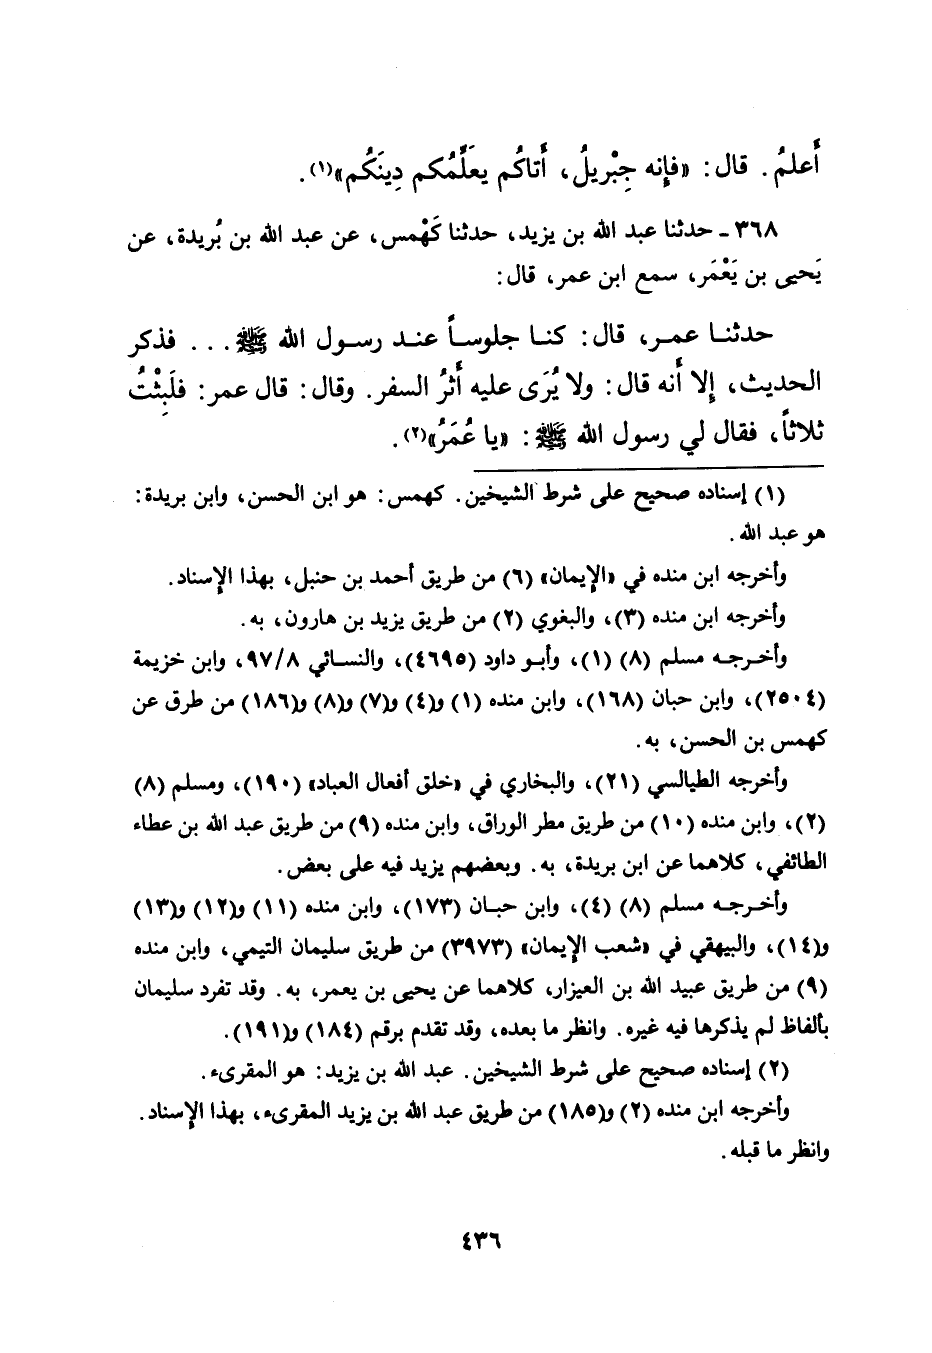 أَعلمُ. قال: «فإِنه جِبْرِيلُ، أَتاكُم يعَلِّمُكم دِينَكُم»(١).
٣٦٨ ـ حدثنا عبد الله بن يزيد، حدثنا كَهْمس، عن عبد الله بن بُريدة، عن
يَحيى بن يَعْمَر، سمع ابن عمر، قال:
حدثنـا عمـر، قال: كنـا جلوسـاً عنـد رسـول الله ﷺ... فذكر
الحديث، إِلا أَنه قال: ولا يُرَى عليه أَثرُ السفر. وقال: قال عمر: فلَبِثْتُ
ثلاثاً، فقال لي رسول الله ﷺ: «يا عُمَرُ»(٢).
(١) إسناده صحيح على شرط الشيخين. كهمس: هو ابن الحسن، وابن بريدة:
هو عبد الله.
وأخرجه ابن منده في «الإيمان» (٦) من طريق أحمد بن حنبل، بهذا الإسناد.
وأخرجه ابن منده (٣)، والبغوي (٢) من طريق يزيد بن هارون، به.
وأخـرجـه مسلم (٨) (١)، وأبـو داود (٤٦٩٥)، والنسـائي ٩٧/٨، وابن خزيمة
(٢٥٠٤)، وابن حبان (١٦٨)، وابن منده (١) و(٤) و(٧) و(٨) و(١٨٦) من طرق عن
كهمس بن الحسن، به.
وأخرجه الطيالسي (٢١)، والبخاري في «خلق أفعال العباد» (١٩٠)، ومسلم (٨)
(٢)، وابن منده (١٠) من طريق مطر الوراق، وابن منده (٩) من طريق عبد الله بن عطاء
الطائفي، كلاهما عن ابن بريدة، به. وبعضهم يزيد فيه على بعض.
وأخـرجـه مسلم (٨) (٤)، وابن حبـان (١٧٣)، وابن منده (١١) و(١٢) و(١٣)
و(١٤)، والبيهقي في «شعب الإيمان» (٣٩٧٣) من طريق سليمان التيمي، وابن منده
(٩) من طريق عبيد الله بن العيزار، كلاهما عن يحيى بن يعمر، به. وقد تفرد سليمان
بألفاظ لم يذكرها فيه غيره. وانظر ما بعده، وقد تقدم برقم (١٨٤) و(١٩١).
(٢) إسناده صحيح على شرط الشيخين. عبد الله بن يزيد: هو المقرىء.
وأخرجه ابن منده (٢) و(١٨٥) من طريق عبد الله بن يزيد المقرىء، بهذا الإسناد.
وانظر ما قبله.
٤٣٦